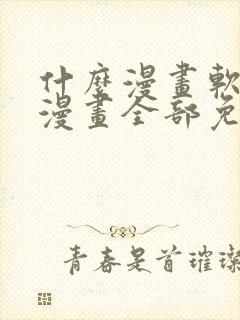 什麼漫畫軟
漫畫全部免
青春是首璀璨